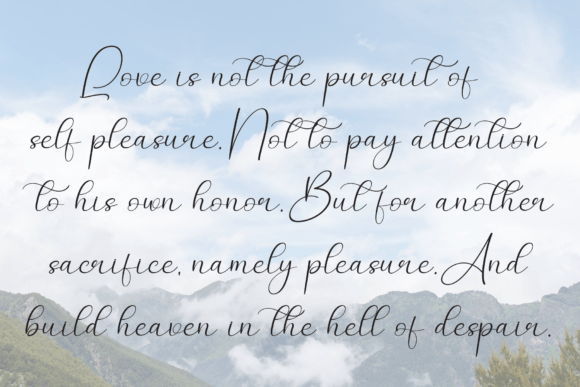 Love is not the pursuit of
self pleasure. Not to pay attention
to his own honor. But for another
sacrifice, namely pleasure. And
build heaven in the hell of despair.